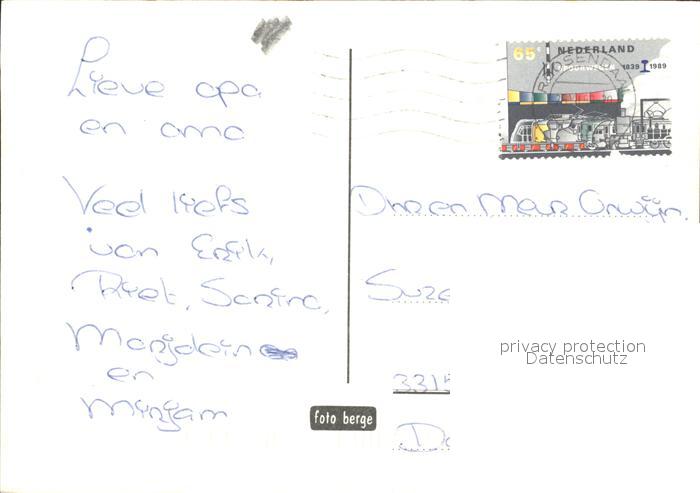 Lieve opa
en oma
Veel liefs
van Erik,
Riet, Sarina,
Marjolein
en
Mirjam
foto berge
65c NEDERLAND
1839 1989
ROOSENDAAL
Dhr en Mevr
Suze
331
privacy protection
Datenschutz